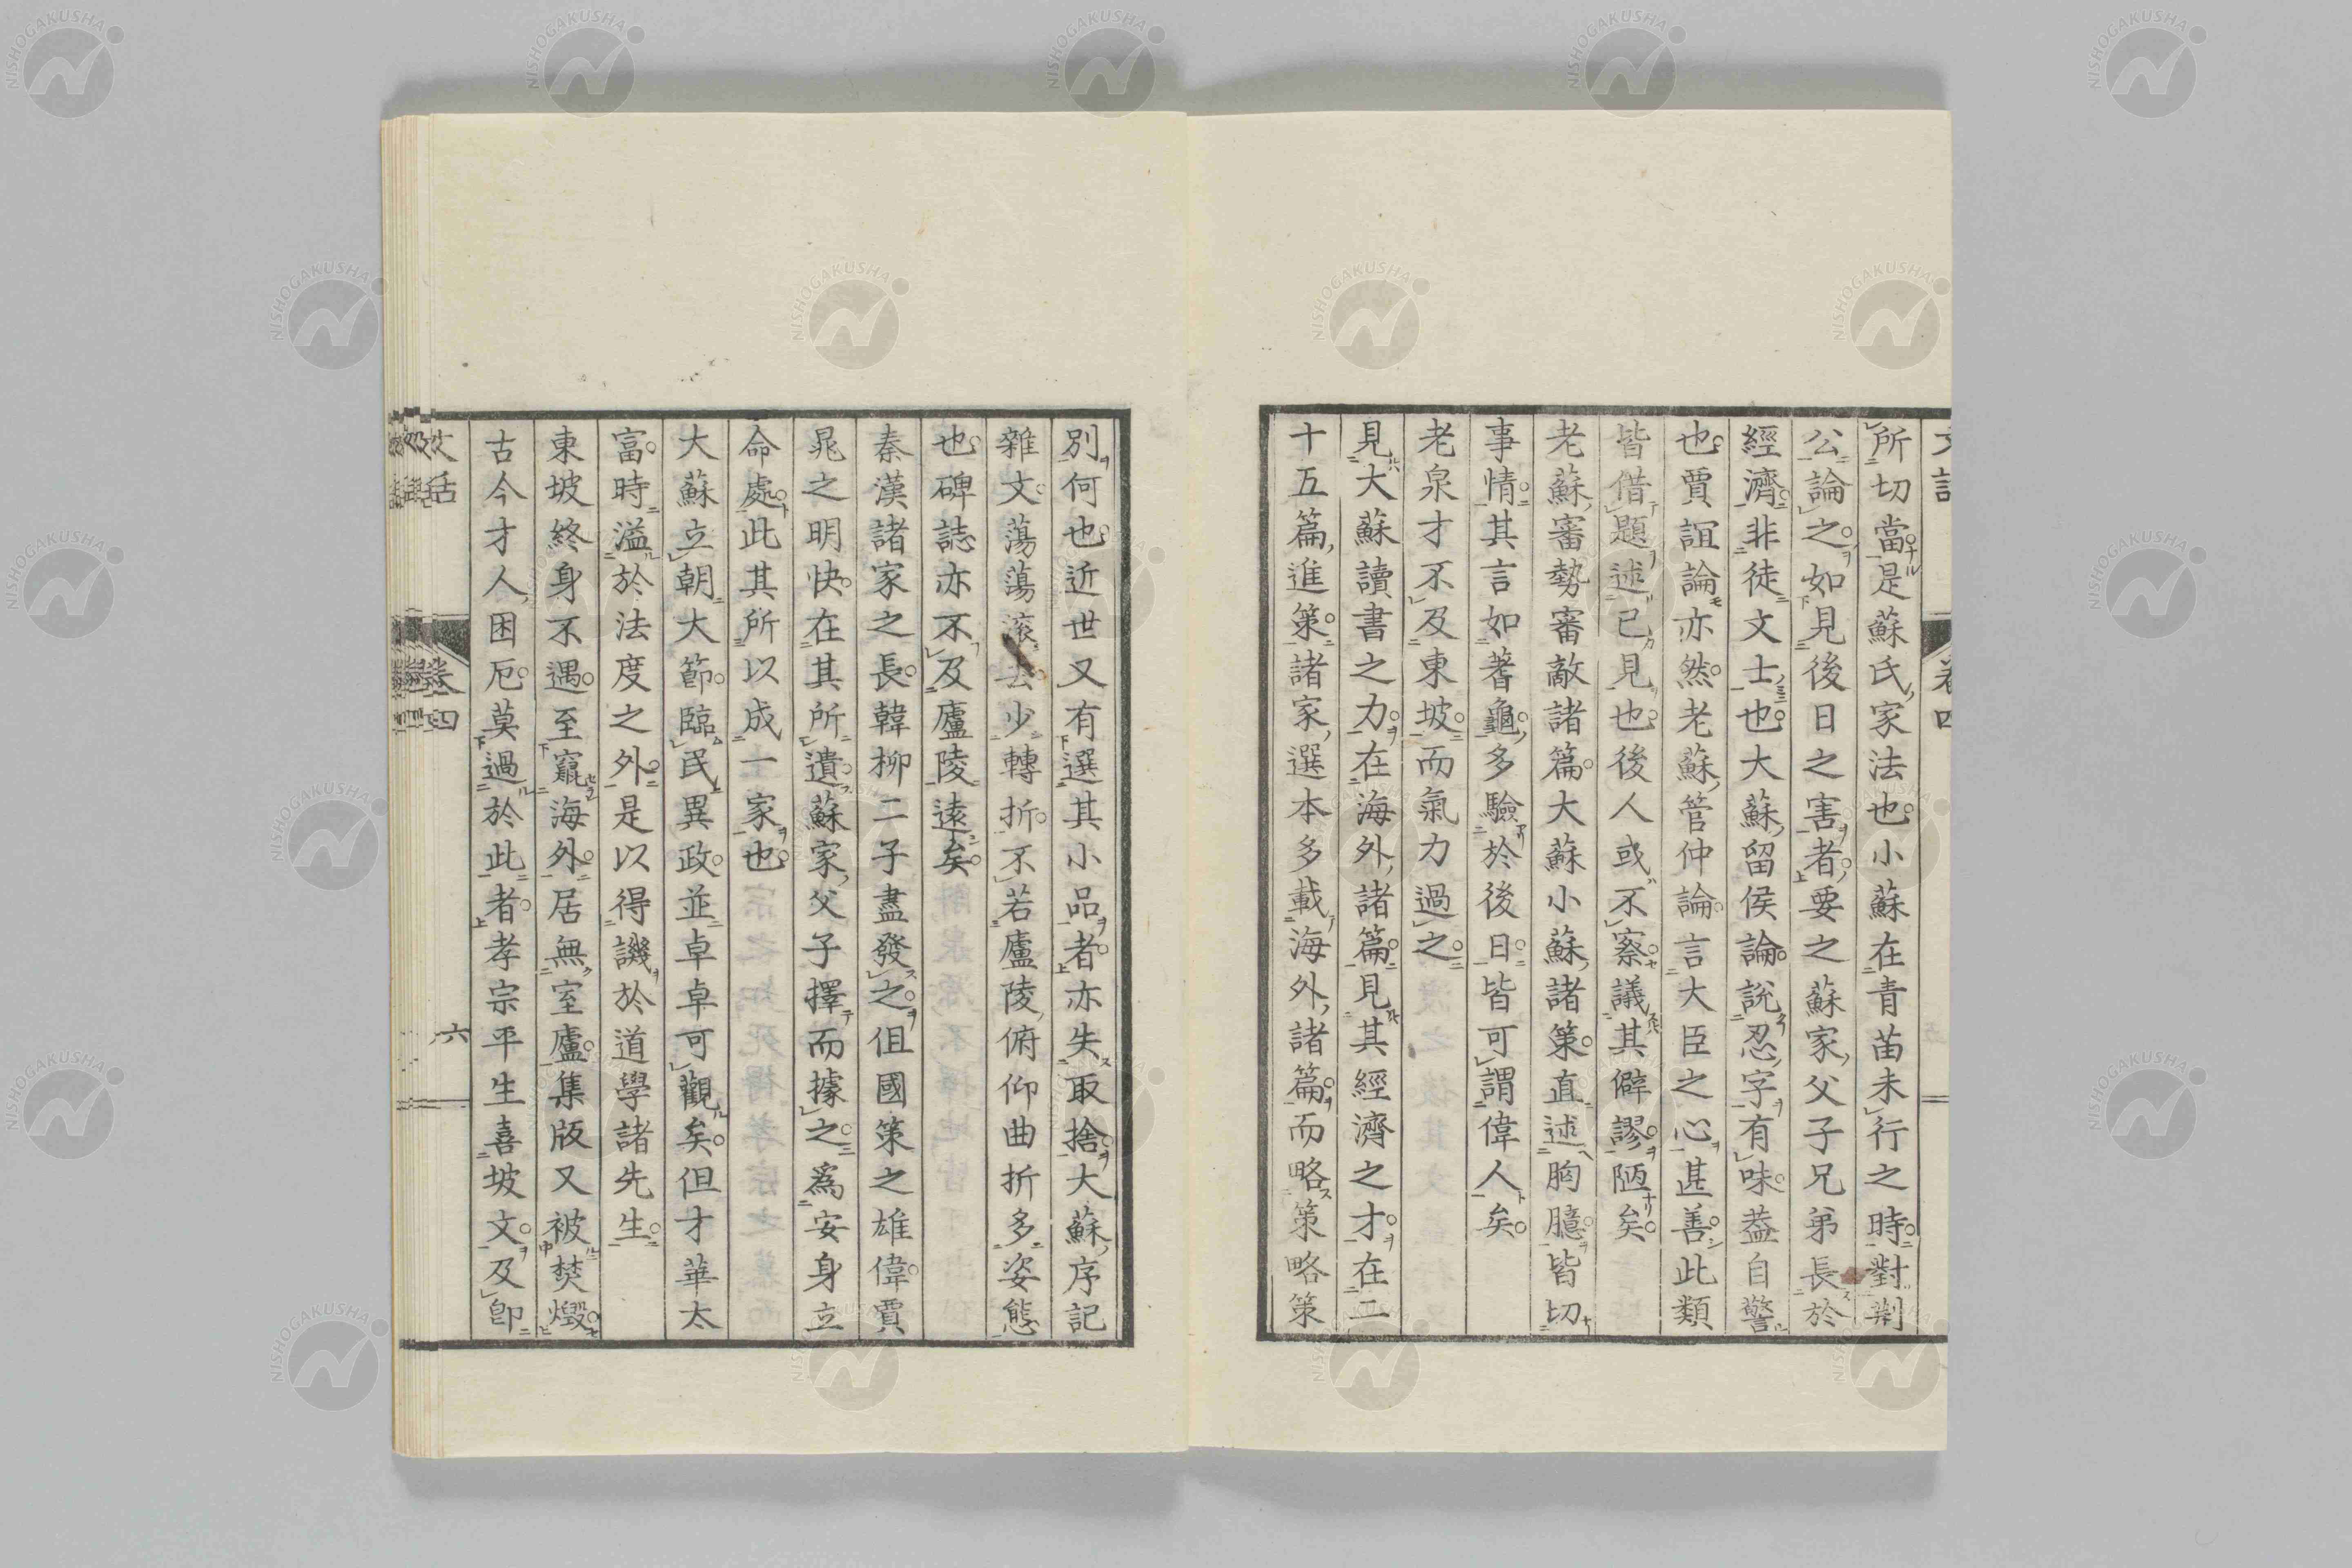 所切當是蘇氏家法也小蘇在青苗未行之時對荆
公論之如見後日之害者要之蘇家父子兄弟長於
經濟非徒文士也大蘇留侯論說忍字有味葢自警
也賈誼論亦然老蘇管仲論言大臣之心甚善此類
皆借題述己見也後人或不察議其僻謬陋矣
老蘇審勢審敵諸篇大蘇小蘇諸策直述胸臆皆切
事情其言如蓍龜多驗於後日皆可謂偉人矣
老泉才不及東坡而氣力過之
見大蘇讀書之力在海外諸篇見其經濟之才在二
十五篇進策諸家選本多載海外諸篇而略策略策
別何也近世又有選其小品者亦失取捨大蘇序記
雜文蕩蕩滾去少轉折不若廬陵俯仰曲折多姿態
也碑誌亦不及廬陵遠矣
秦漢諸家之長韓柳二子盡發之但國策之雄偉賈
晁之明快在其所遺蘇家父子擇而據之爲安身立
命處此其所以成一家也
大蘇立朝大節臨民異政並卓卓可觀矣但才華太
富時溢於法度之外是以得譏於道學諸先生
東坡終身不遇至竄海外居無室廬集版又被焚燬
古今才人困厄莫過於此者孝宗平生喜坡文及卽
文話
卷四
六